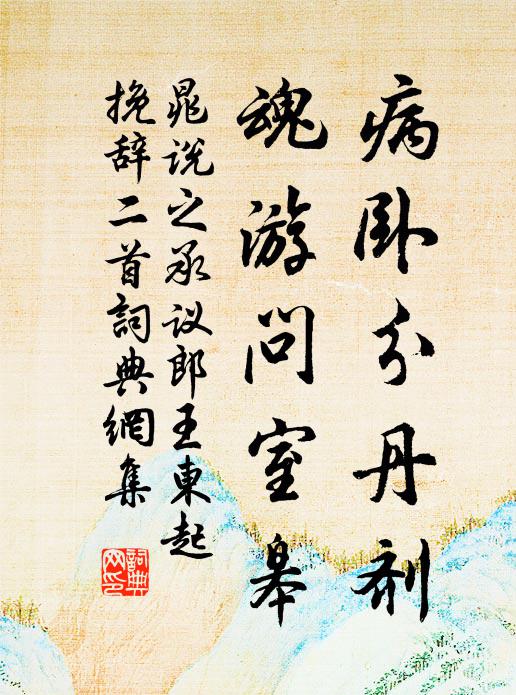 病卧分丹剂
魂游问室皋
晁说之承议郎王東起
挽辞二首詞典網集
詞典網印